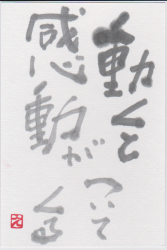 動くと
感動が
ついて
くる